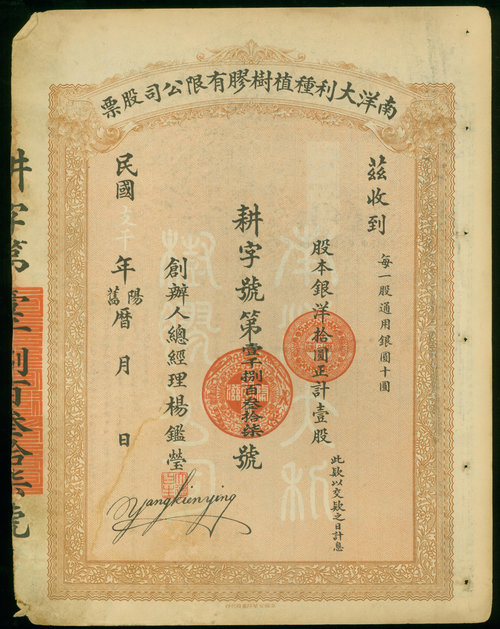 南洋大利種植樹膠有限公司股票
茲收到
每一股通用銀圓十圓
股本銀洋拾圓正計壹股
此欵以交欵之日計息
耕字號第壹千捌百叁拾柒號
創辦人總經理楊鑑瑩
Yangkienying
民國支干年陽舊曆月日
耕字第壹千捌百叁拾柒號